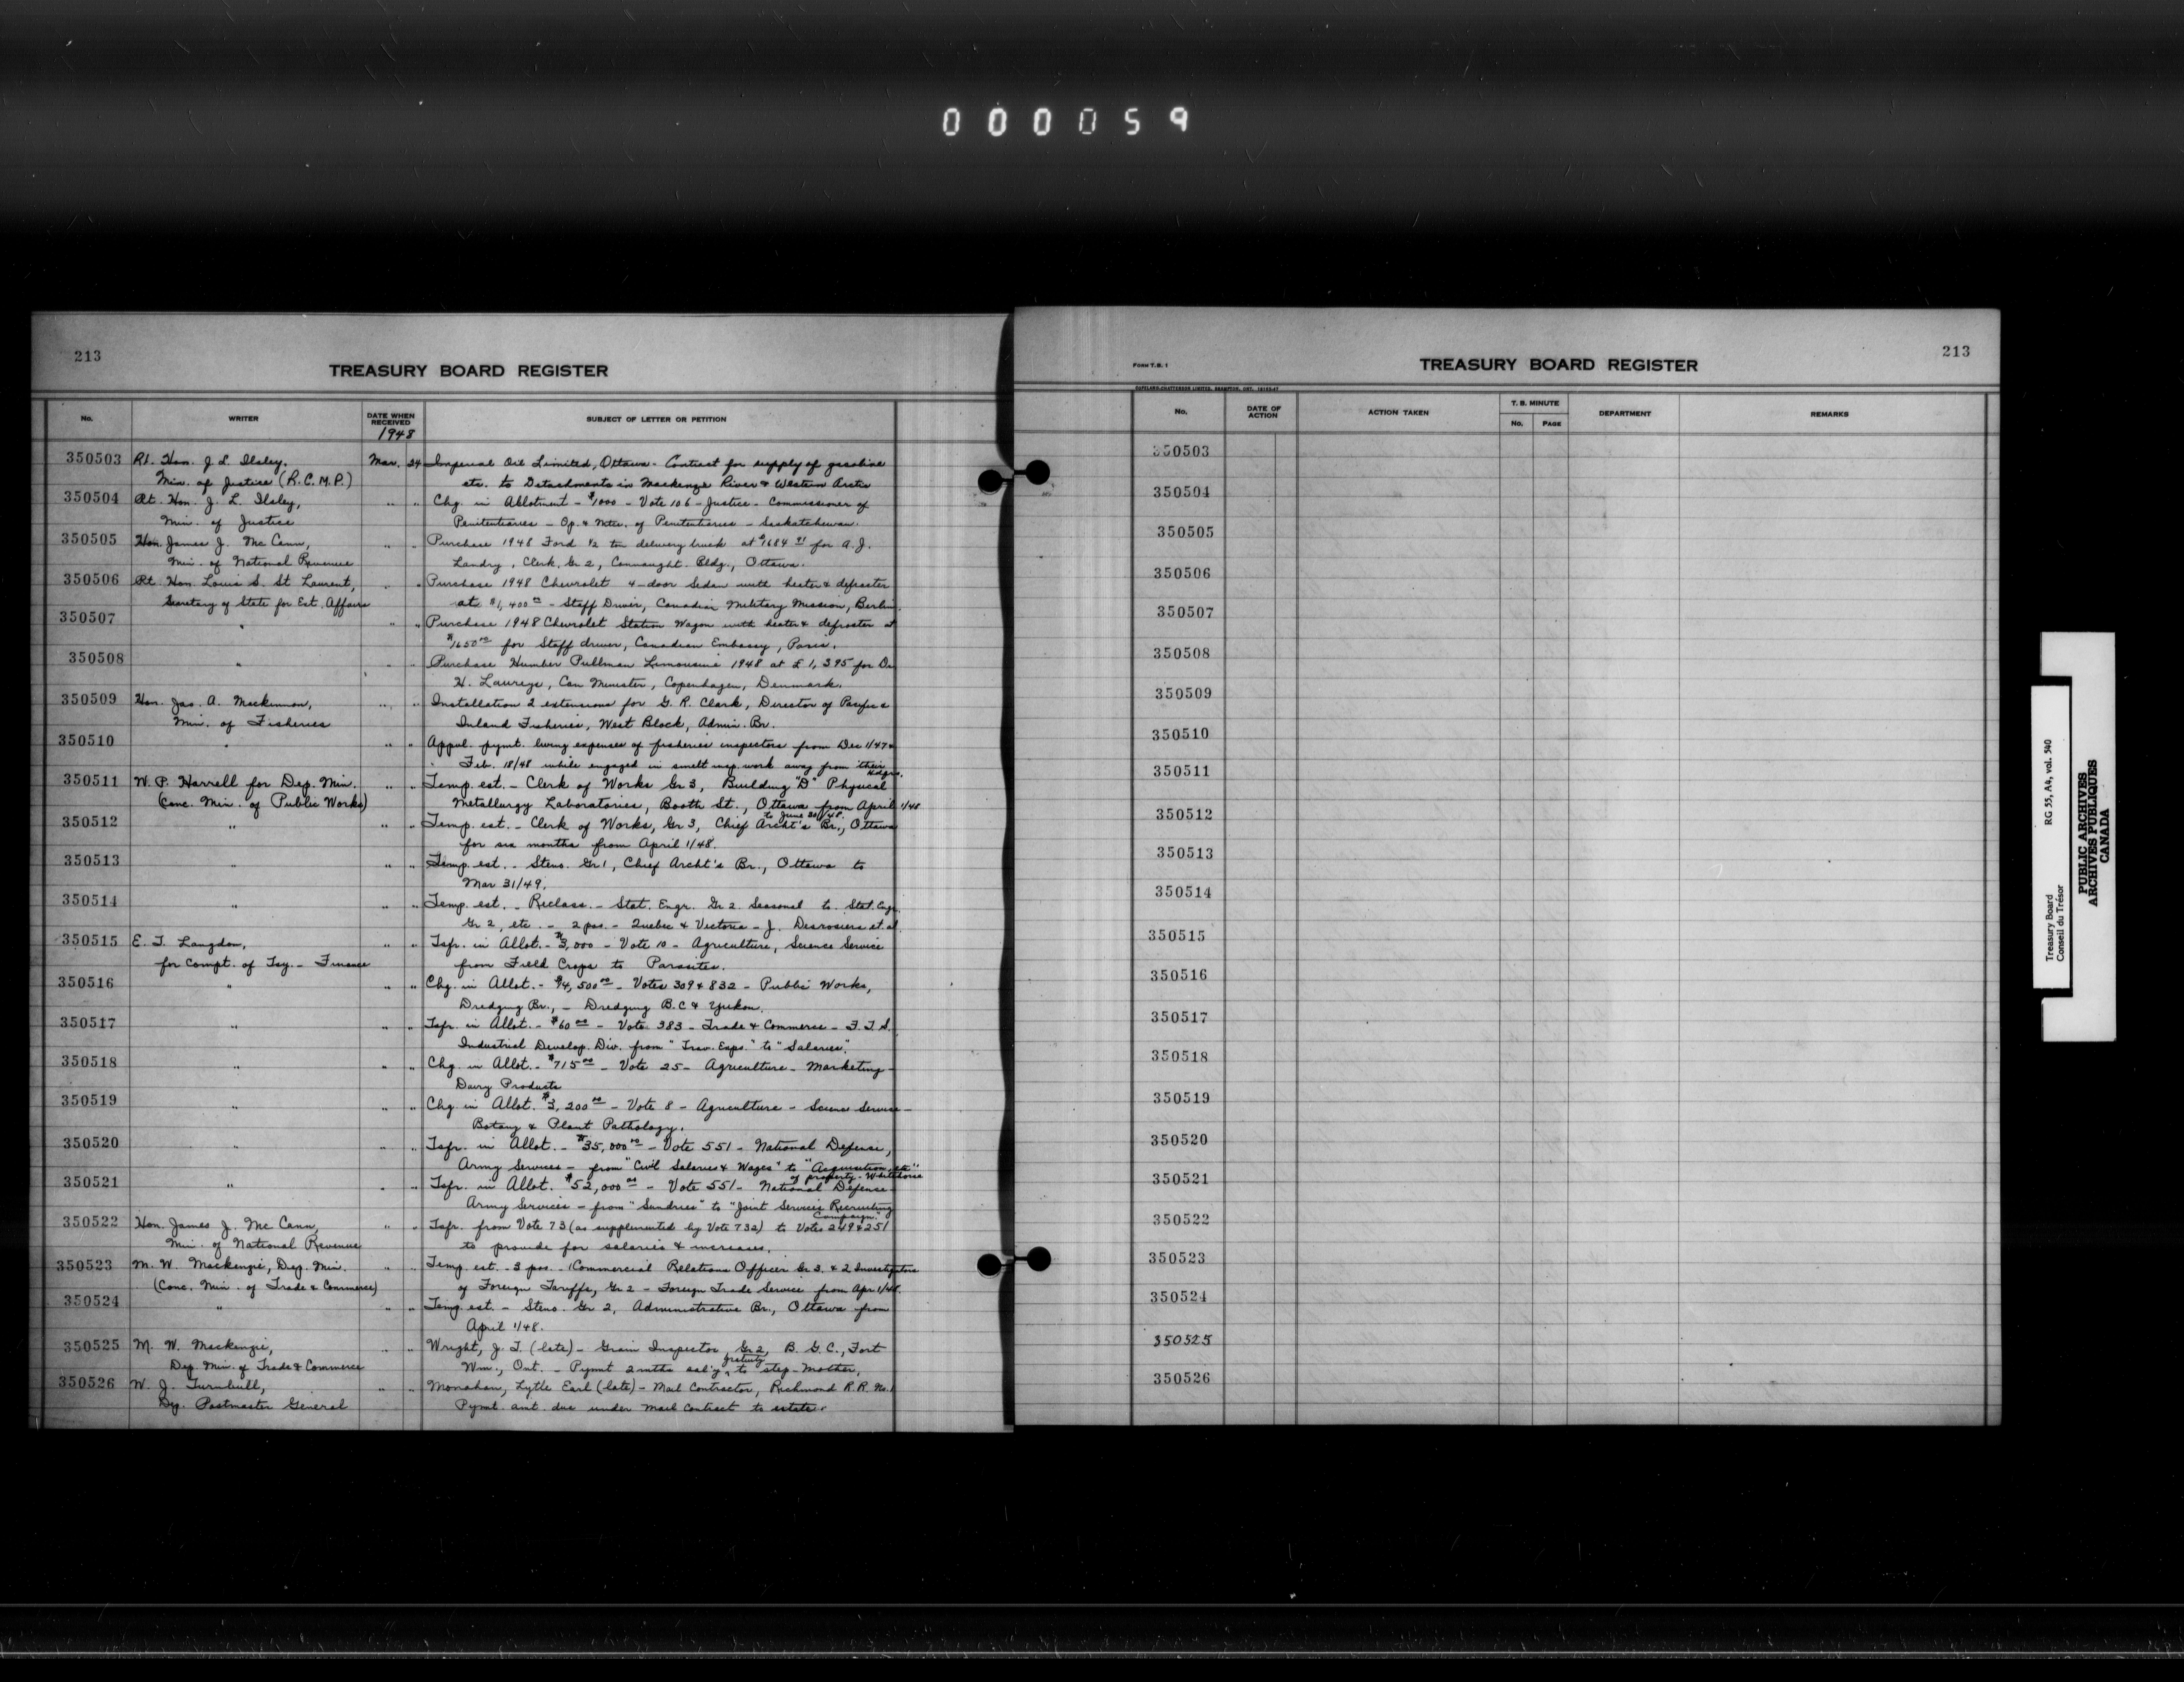 000059
213
TREASURY BOARD REGISTER
No. WRITER DATE WHEN RECEIVED SUBJECT OF LETTER OR PETITION
1948
350503 Rt. Hon. J. L. Ilsley, Mar. 24 Imperial Oil Limited, Ottawa - Contract for supply of gasoline
Min. of Justice (R.C.M.P.) etc. to Detachments in Mackenzie River & Western Arctic
350504 Rt. Hon. J. L. Ilsley, " " Chg. in Allotment - $1000 - Vote 106 - Justice - Commissioner of
Min. of Justice Penitentiaries - Op. & Mtce. of Penitentiaries - Saskatchewan.
350505 Hon. James J. McCann, " " Purchase 1948 Ford 1/2 ton delivery truck at $1684 91 for A. J.
Min. of National Revenue Landry, Clerk, Gr 2, Connaught Bldg., Ottawa.
350506 Rt. Hon. Louis S. St Laurent, " " Purchase 1948 Chevrolet 4-door Sedan with heater & defroster
Secretary of State for Ext. Affairs at $1,400 00 - Staff Driver, Canadian Military Mission, Berlin.
350507 " " " Purchase 1948 Chevrolet Station Wagon with heater & defroster at
$1650 00 for Staff driver, Canadian Embassy, Paris.
350508 " " " Purchase Humber Pullman Limousine 1948 at £1,395 for Dr.
H. Laureys, Can Minister, Copenhagen, Denmark.
350509 Hon. Jas. A. Mackinnon, " " Installation 2 extensions for G. R. Clark, Director of Pacific &
Min. of Fisheries Inland Fisheries, West Block, Admin. Br.
350510 " " " Appvl. pymt. living expenses of fisheries inspectors from Dec 1/47 &
Feb. 18/48 while engaged in smelt insp. work away from their Hdqrs.
350511 W. P. Harrell for Dep. Min. " " Temp. est. - Clerk of Works Gr 3, Building "D" Physical
(conc. Min. of Public Works) Metallurgy Laboratories, Booth St., Ottawa from April 1/48
to June 30/48.
350512 " " " Temp. est. - Clerk of Works, Gr 3, Chief Archt's Br., Ottawa
for six months from April 1/48.
350513 " " " Temp. est. - Steno. Gr 1, Chief Archt's Br., Ottawa to
Mar 31/49.
350514 " " " Temp. est. - Reclass. - Stat. Engr. Gr 2. Seasonal to Stat. Engr.
Gr 2, etc. - 2 pos. - Quebec & Victoria - J. Desrosiers et al.
350515 E. T. Langdon, " " Tsfr. in Allot. - $3,000 - Vote 10 - Agriculture, Science Service
for Compt. of Tsy. - Finance from Field Crops to Parasites.
350516 " " " Chg. in Allot. - $4,500 00 - Votes 309 & 832 - Public Works,
Dredging Br., - Dredging B.C & Yukon.
350517 " " " Tsfr. in Allot. - $60 00 - Vote 383 - Trade & Commerce - F. T. S.
Industrial Develop. Div. from "Trav. Exps." to "Salaries".
350518 " " " Chg. in Allot. - $715 00 - Vote 25 - Agriculture - Marketing -
Dairy Products
350519 " " " Chg. in Allot. $3,200 00 - Vote 8 - Agriculture - Science Service -
Botany & Plant Pathology.
350520 " " " Tsfr. in Allot. - $35,000 00 - Vote 551 - National Defense,
Army Services - from "Civil Salaries & Wages" to "Acquisition, etc"
of property - Whitehorse
350521 " " " Tsfr. in Allot. $52,000 00 - Vote 551 - National Defense
Army Services - from "Sundries" to "Joint Services Recruiting
Campaign."
350522 Hon. James J. McCann, " " Tsfr. from Vote 73 (as supplemented by Vote 732) to Votes 249 & 251
Min. of National Revenue to provide for salaries & increases.
350523 M. W. Mackenzie, Dep. Min. " " Temp. est. - 3 pos. - 1 Commercial Relations Officer Gr 3. & 2 Investigators
(Conc. Min. of Trade & Commerce) of Foreign Tariffs, Gr 2 - Foreign Trade Service from Apr 1/48.
350524 " " " Temp. est. - Steno. Gr 2, Administrative Br., Ottawa from
April 1/48.
350525 M. W. Mackenzie, " " Wright, J. T. (late) - Grain Inspector, Gr 2, B. G. C., Fort
Dep. Min. of Trade & Commerce Wm., Ont. - Pymt 2 mths sal'y gratuity to step-mother.
350526 W. J. Turnbull, " " Monahan, Lytle Earl (late) - Mail Contractor, Richmond R.R. No. 1
Dep. Postmaster General Pymt. amt. due under mail contract to estate.
FORM T.B. 1
TREASURY BOARD REGISTER
213
No. DATE OF ACTION ACTION TAKEN T. B. MINUTE No. PAGE DEPARTMENT REMARKS
350503
350504
350505
350506
350507
350508
350509
350510
350511
350512
350513
350514
350515
350516
350517
350518
350519
350520
350521
350522
350523
350524
350525
350526
Treasury Board RG 55, A4, vol. 540
Conseil du Trésor
PUBLIC ARCHIVES
ARCHIVES PUBLIQUES
CANADA